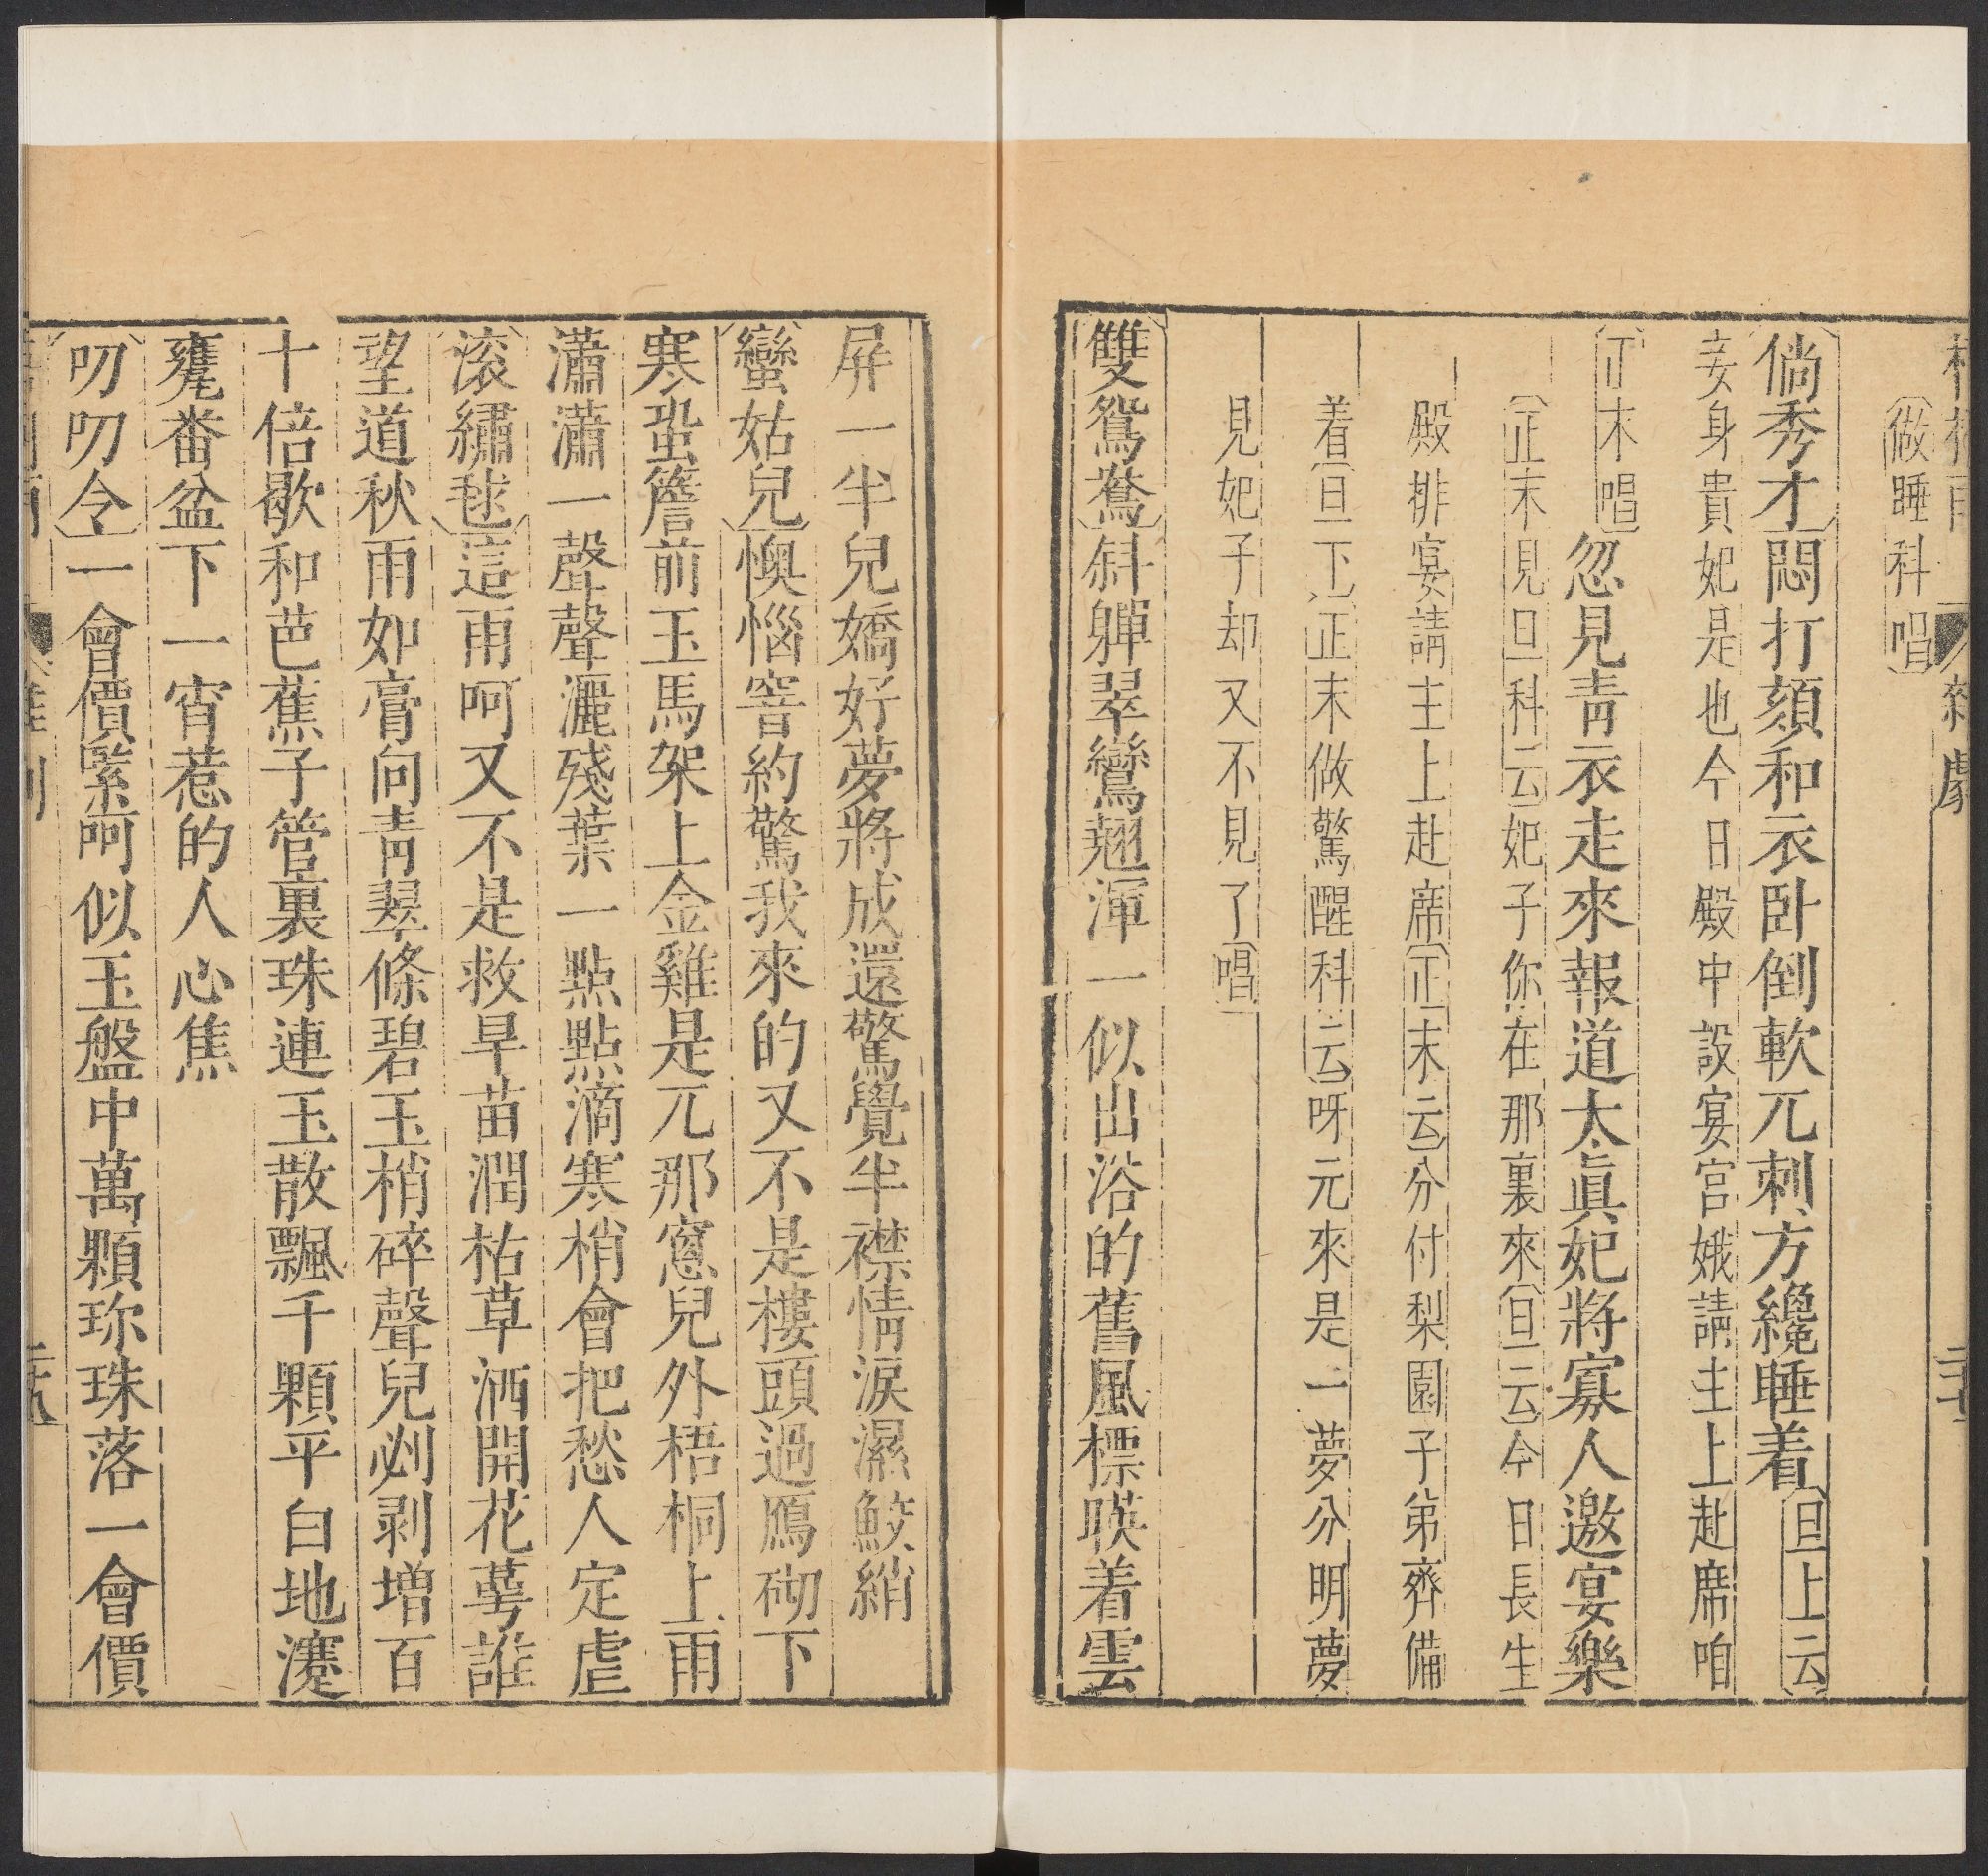 雜劇
做睡科唱
倘秀才悶打頦和衣卧倒軟兀剌方纔睡着旦上云
妾身貴妃是也今日殿中設宴宮娥請主上赴席咱
正末唱忽見青衣走來報道太眞妃將寡人邀宴樂
正末見旦科云妃子你在那裏來旦云今日長生
殿排宴請主上赴席正末云分付梨園子弟齊備
着旦下正末做驚醒科云呀元來是一夢分明夢
見妃子却又不見了唱
雙鴛鴦斜軃翠鸞翹渾一似出浴的舊風標暎着雲
屏一半兒嬌好夢將成還驚覺半襟情淚濕鮫綃
蠻姑兒懊惱窨約驚我來的又不是樓頭過鴈砌下
寒蛩簷前玉馬架上金雞是兀那窻兒外梧桐上雨
瀟瀟一聲聲灑殘葉一點點滴寒梢會把愁人定虐
滚繡毬這雨呵又不是救旱苗潤枯草洒開花萼誰
望道秋雨如膏向青翠條碧玉梢碎聲兒必剥增百
十倍歇和芭蕉子管裏珠連玉散飄千顆平白地瀽
甕番盆下一宵惹的人心焦
叨叨令一會價緊呵似玉盤中萬顆珍珠落一會價